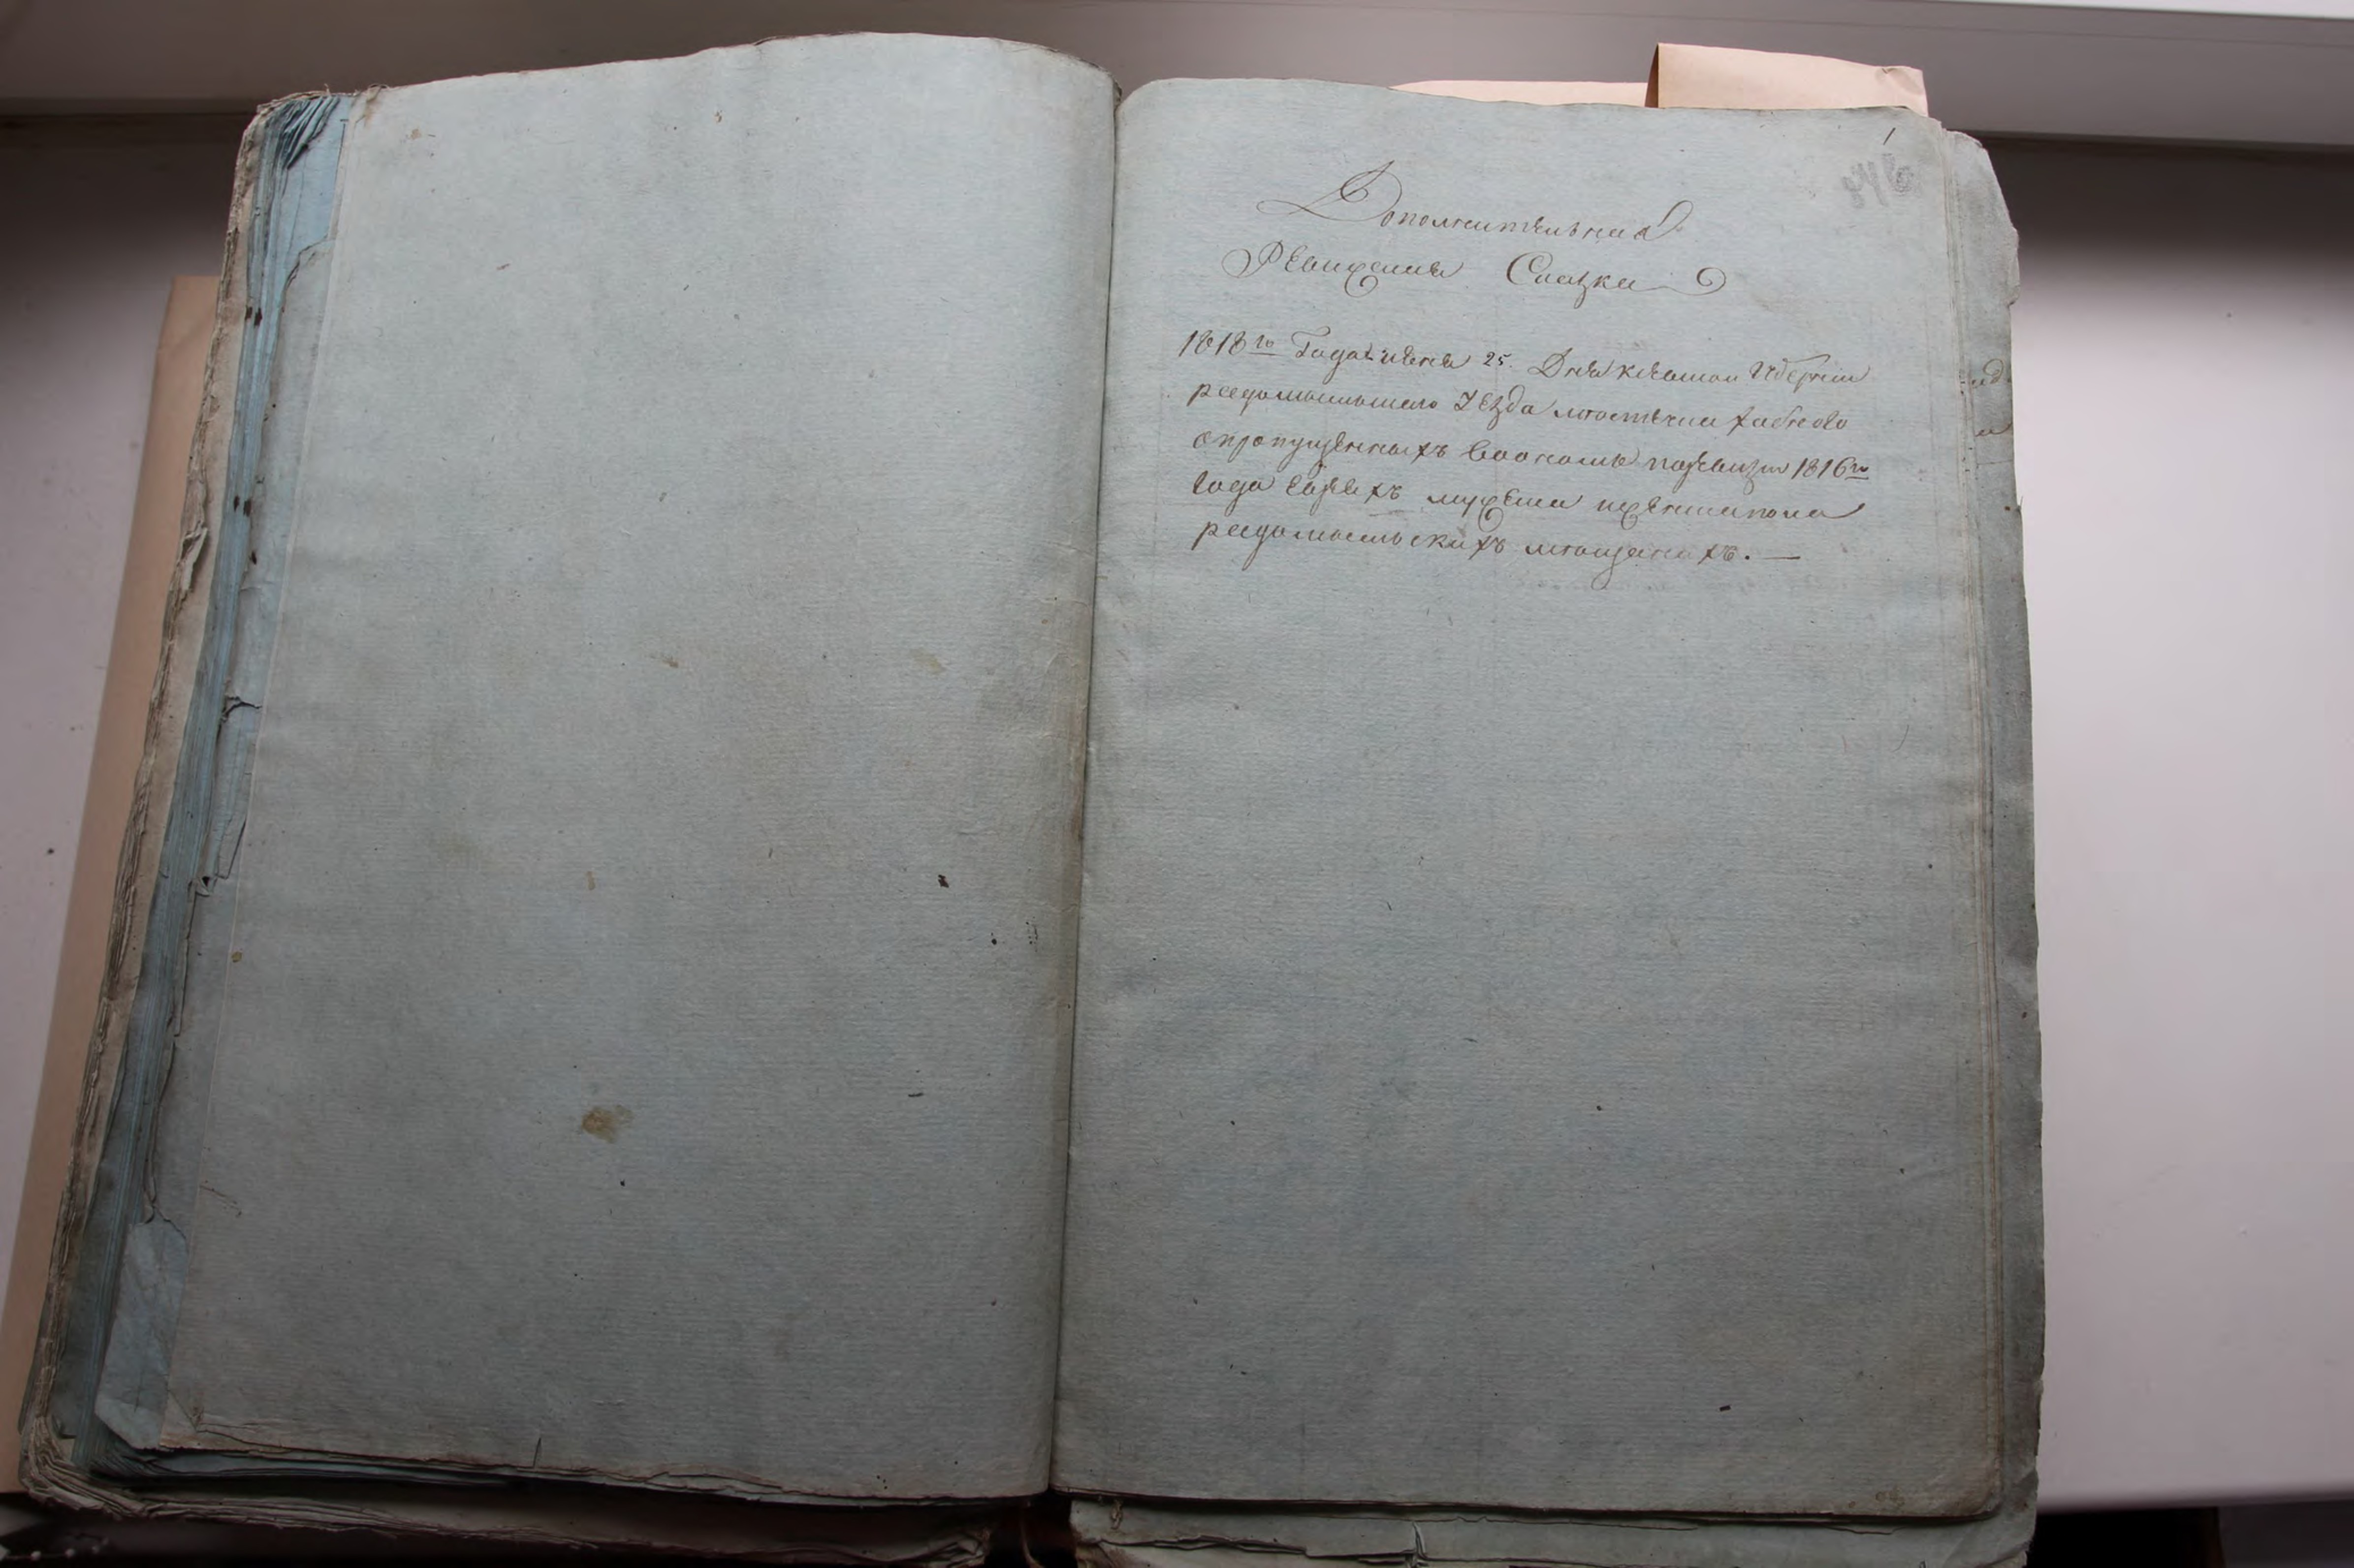 1
Дополнительная
Ревижская Сказка
1818го Года июня 25. Дня киевской Губернии
радомысльшаго Уезда местечка хабного
опропущенныхъ воономъ поревизии 1816го
Года евреяхъ мужеска иженскапола
радомысльскихъ мещанахъ. —